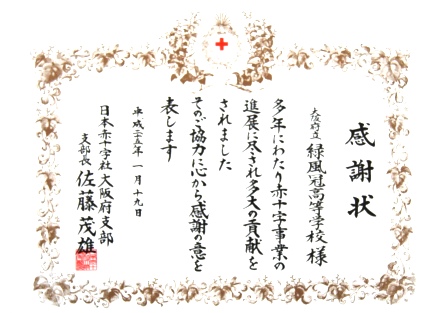 感謝状
大阪府立 緑風冠高等学校 様
多年にわたり赤十字事業の
進展に尽され多大の貢献を
されました
そのご協力に心から感謝の意を
表します
平成二十五年 一月 十九日
日本赤十字社大阪府支部
支部長 佐藤茂雄